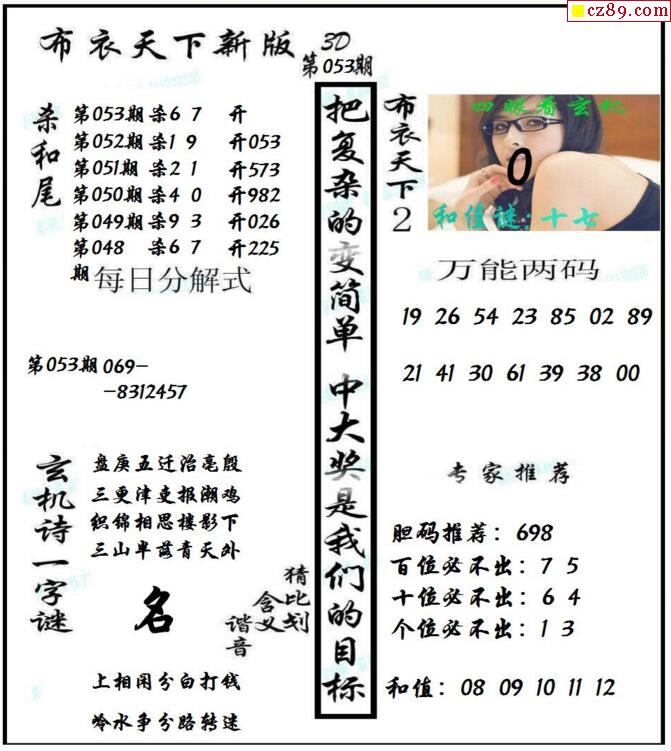 cz89.com
布衣天下新版 3D
第053期
杀和尾
第053期 杀6 7 开
第052期 杀1 9 开053
第051期 杀2 1 开573
第050期 杀4 0 开982
第049期 杀9 3 开026
第048期 杀6 7 开225
每日分解式
第053期 069-
-8312457
玄机诗一字谜
盘庚五迁治亳殷
三更津吏报潮鸡
织锦相思楼影下
三山半落青天外
名
猜比划
含义
谐音
上相闲分白打钱
冷水争分路转迷
把复杂的变简单 中大奖是我们的目标
布衣天下2
四眼看玄机
0
和值谜:十七
万能两码
19 26 54 23 85 02 89
21 41 30 61 39 38 00
专家推荐
胆码推荐：698
百位必不出：7 5
十位必不出：6 4
个位必不出：1 3
和值：08 09 10 11 12